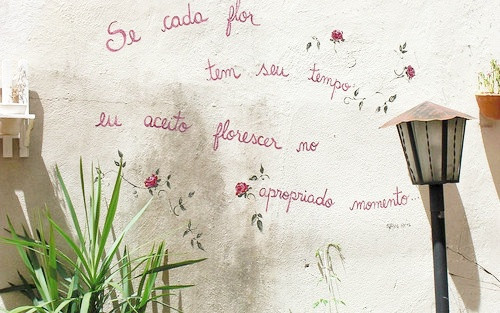 Se cada flor
tem seu tempo
eu aceito florescer no
apropriado momento...